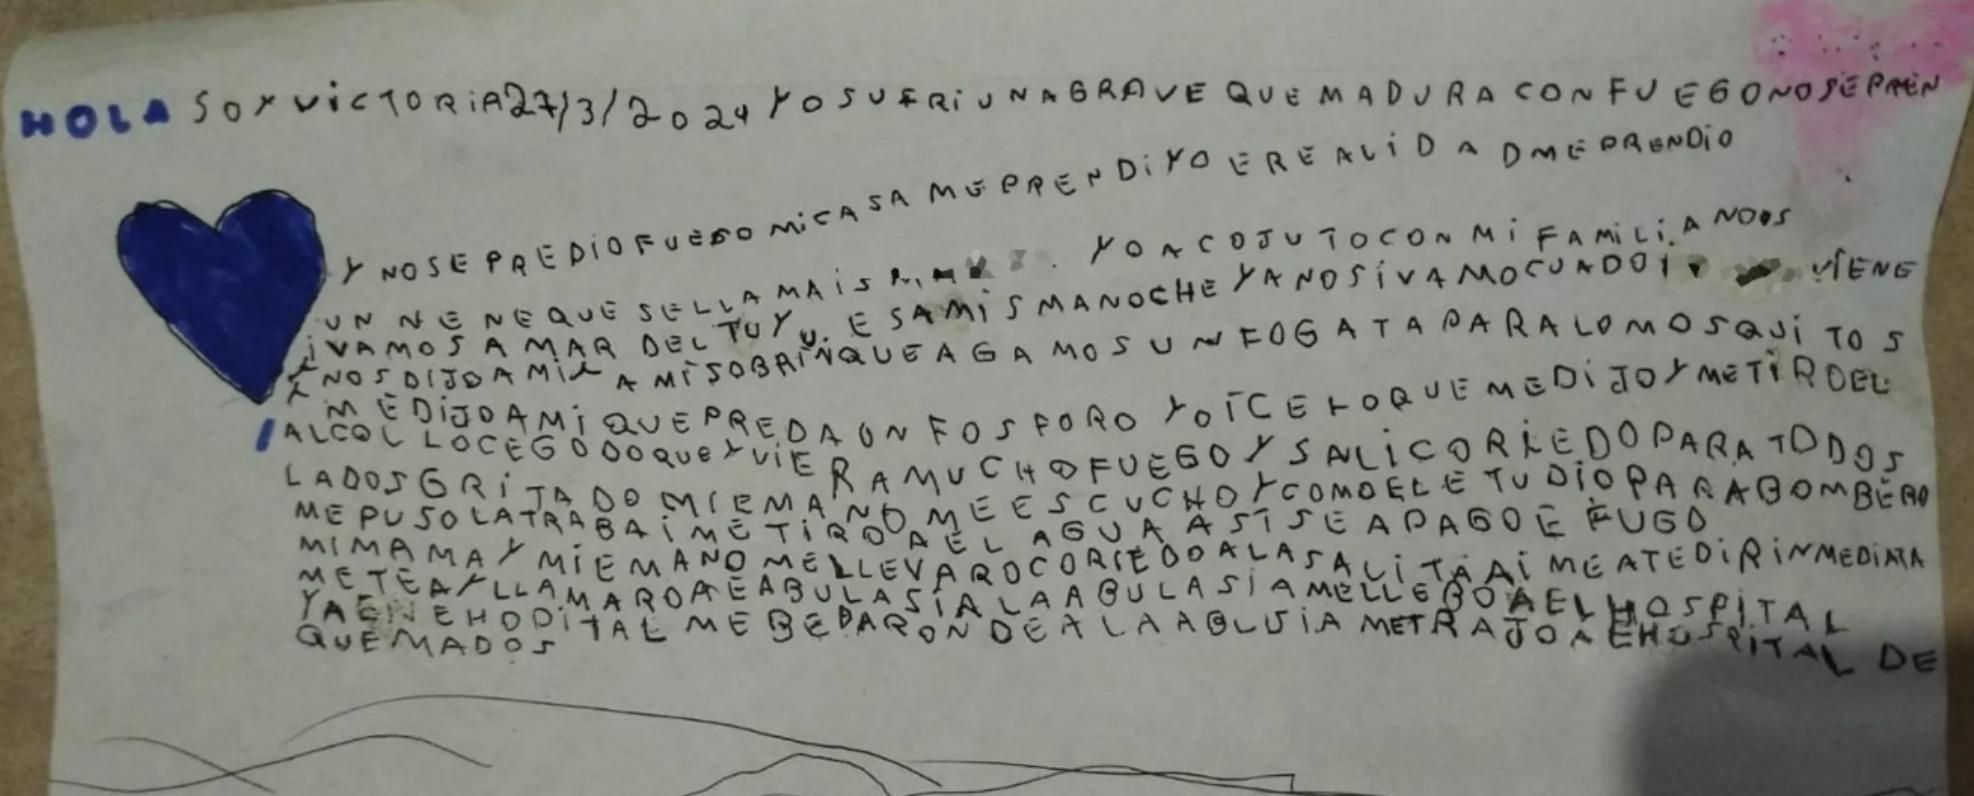 HOLA SOY VICTORIA 27/3/2024 YO SUFRI UNA GRAVE QUEMADURA CON FUEGO NO SE PREN
Y NO SE PREDIO FUEGO MI CASA ME PRENDI YO E REALIDAD ME PRENDIO
UN NENE QUE SE LLAMA YO ACOJUTO CON MI FAMILIA NOOS
IVAMOS A MAR DEL TUYU. ESA MISMA NOCHE YA NOS IVAMO CUADO VIENE
Y NOS DIJO A MI Y A MI SOBRIN QUE AGAMOS UN FOGATA PARA LO MOSQUITOS
Y ME DIJO A MI QUE PREDA UN FOSFORO YO ICE LO QUE ME DIJO Y ME TIRO EL
ALCOL LO CEGODO QUE Y VIERA MUCHO FUEGO Y SALI CORIEDO PARA TODOS
LADOS GRITADO MI EMANO ME ESCUCHO Y COMO EL ETUDIO PARA BOMBERO
ME PUSO LA TRABA I ME TIRO A EL AGUA ASI SE APAGO E FUGO
MI MAMA Y MI EMANO ME LLEVARO CORIEDO A LA SALITA AI ME ATEDIR INMEDIATA
METE A Y LLAMARO A E ABULASIA LA ABULASIA ME LLEBO A EL HOSPITAL
YA EN E HOPITAL ME BEDARON DE A LA ABLUSIA ME TRAJO A E HOSPITAL DE
QUEMADOS